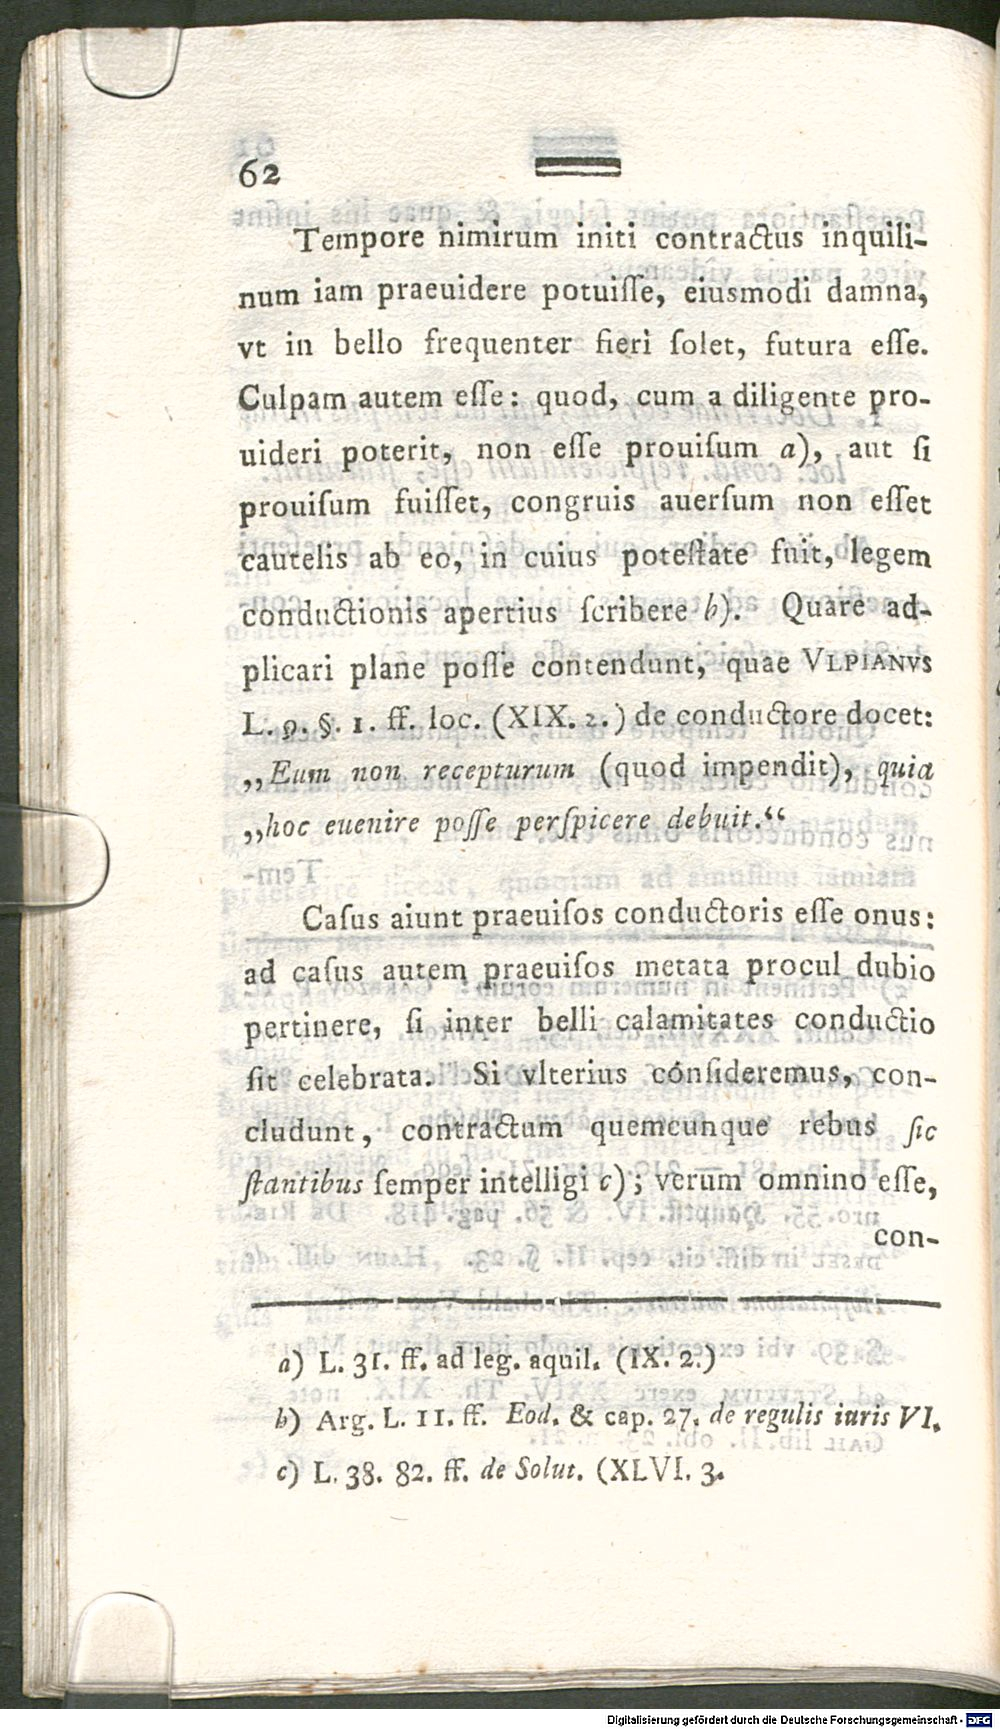 62
Tempore nimirum initi contractus inquili-
num iam praeuidere potuiſſe, eiusmodi damna,
vt in bello frequenter fieri ſolet, futura eſſe.
Culpam autem eſſe: quod, cum a diligente pro-
uideri poterit, non eſſe prouiſum a), aut ſi
prouiſum fuiſſet, congruis auerſum non eſſet
cautelis ab eo, in cuius poteſtate fuit, legem
conductionis apertius ſcribere b). Quare ad-
plicari plane poſſe contendunt, quae VLPIANVS
L. 9. §. 1. ff. loc. (XIX. 2.) de conductore docet:
„Eum non recepturum (quod impendit), quia
„hoc euenire poſſe perſpicere debuit.“
Caſus aiunt praeuiſos conductoris eſſe onus:
ad caſus autem praeuiſos metata procul dubio
pertinere, ſi inter belli calamitates conductio
ſit celebrata. Si vlterius conſideremus, con-
cludunt, contractum quemcunque rebus ſic
ſtantibus ſemper intelligi c); verum omnino eſſe,
con-
a) L. 31. ff. ad leg. aquil. (IX. 2.)
b) Arg. L. 11. ff. Eod. & cap. 27. de regulis iuris VI.
c) L. 38. 82. ff. de Solut. (XLVI. 3.
Digitalisierung gefördert durch die Deutsche Forschungsgemeinschaft - DFG